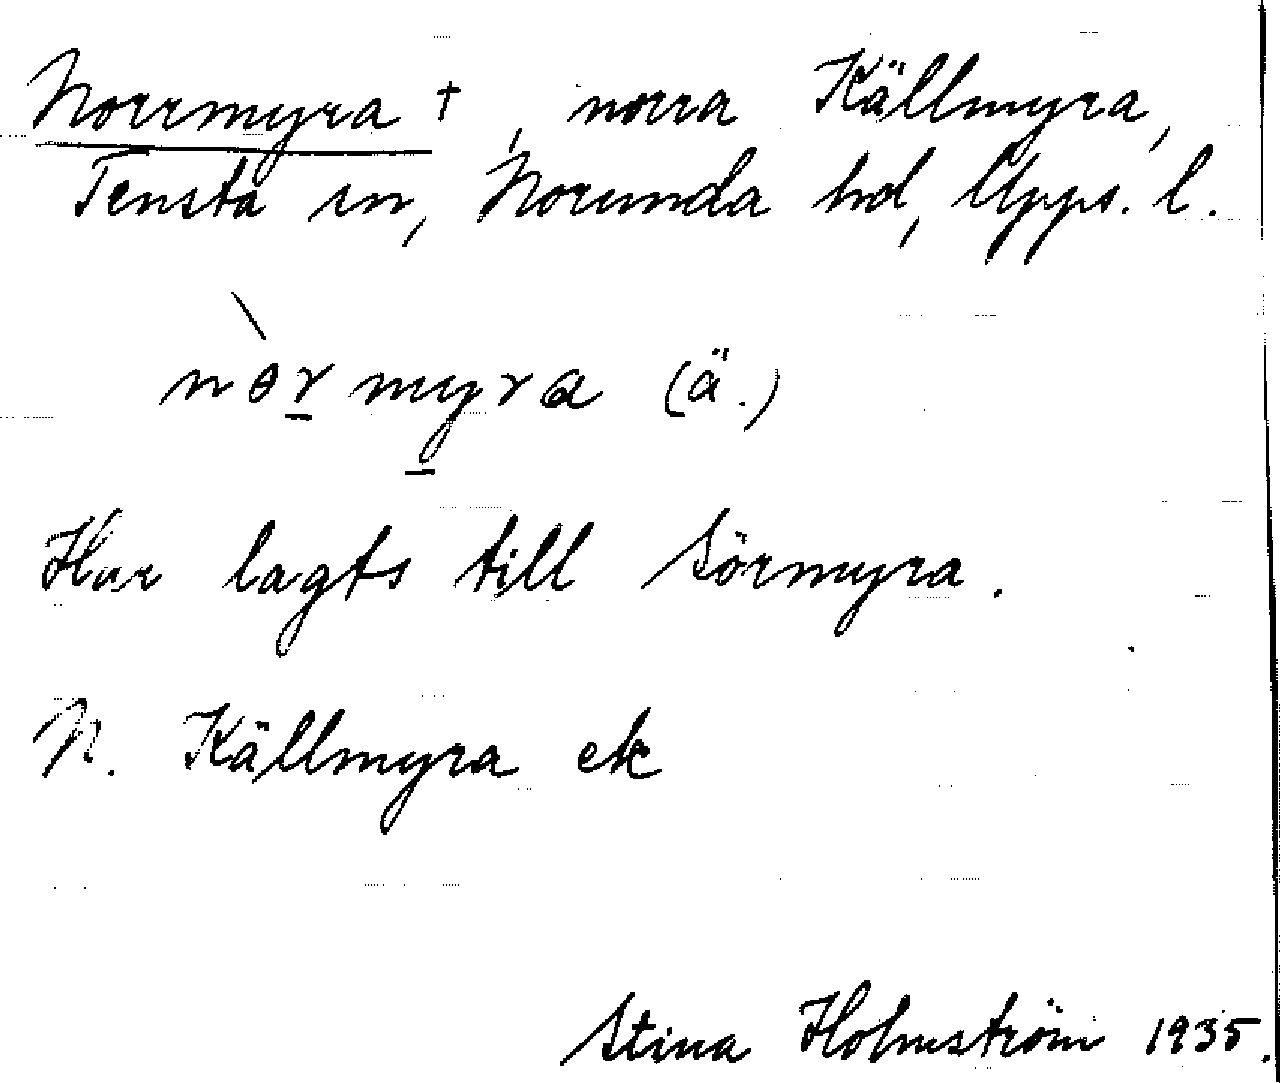 Norrmyra †, norra Källmyra,
Tensta sn, Norunda hd, Upps. l.
nèrmyra (ä.)
Har lagts till Sörmyra.
N. Källmyra ek
Stina Holmström 1935.